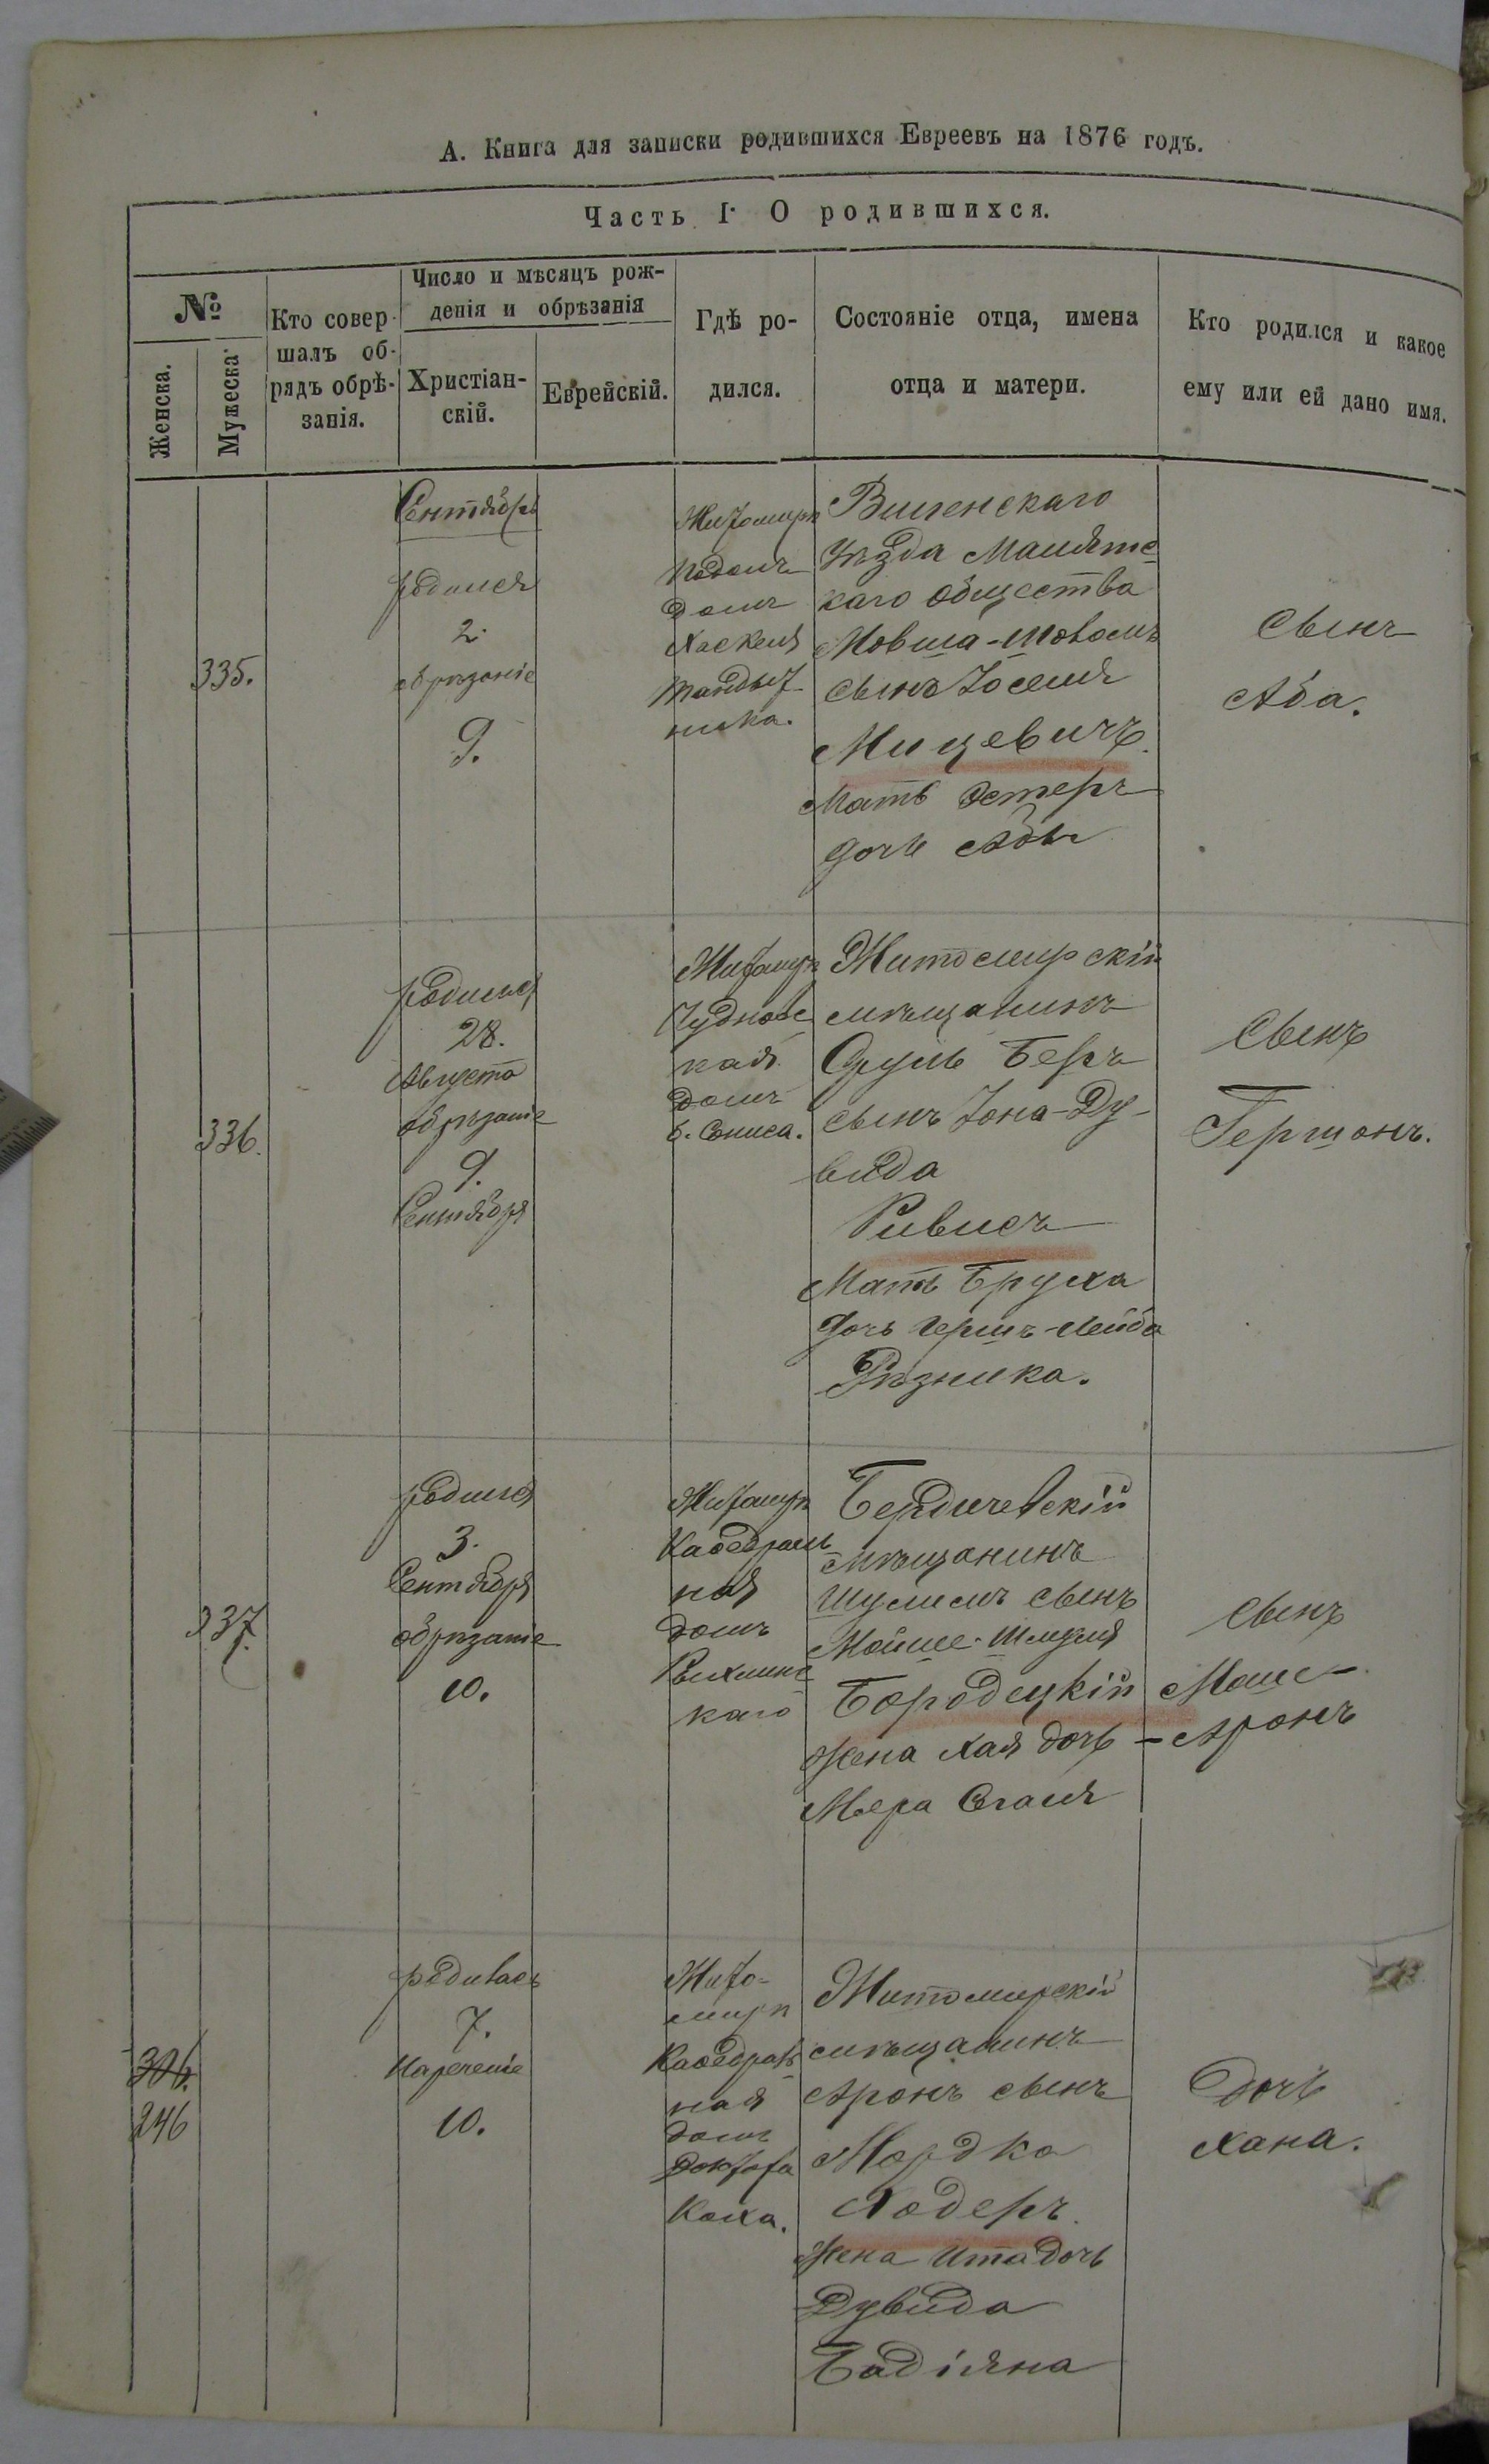 А. Книга для записки родившихся Евреевъ на 1876 годъ.
Часть I. О родившихся.
№
Женска.
Мужеска
Кто совер-
шалъ об-
рядъ обрѣ-
занія.
Число и мѣсяцъ рож-
денія и обрѣзанія
Христіан-
скій.
Еврейскій.
Гдѣ ро-
дился.
Состояніе отца, имена
отца и матери.
Кто родился и какое
ему или ей дано имя.
335.
Сентябрь
родился
2.
обрѣзаніе
9.
Житомиръ
Подолъ
домъ
Хаскеля
Виленскаго
уѣзда Малятс
каго общества
Мовша-Товомъ
сынъ Іоселя
Мицевичъ.
Мать Эстеръ
дочь Абы
Сынъ
Аба.
336.
родился
28.
Августа
обрѣзаніе
9.
Сентября
Житомиръ
Чудновс
кая
домъ
Житомирскій
мѣщанинъ
Сруль Беръ
сынъ Іона-Ду-
вида
Ривисъ
Мать Бруха
дочь Гершъ-Лейба
Рѣзника.
Сынъ
Гершонъ.
337.
родился
3.
Сентября
обрѣзаніе
10.
Житомиръ
Каѳедраль
ная
домъ
Рыхлинс
каго
Бердичевскій
мѣщанинъ
Шулимъ сынъ
Мойше-Шмуля
Бородецкій
жена Хая дочь
Меера Сгаля
Сынъ
Моше-
-Аронъ
306.
246
родилась
7.
Нареченіе
10.
Жито-
миръ
Каѳедраль
ная
домъ
Доктора
Коха.
Житомирскій
мѣщанинъ
Аронъ сынъ
Мордко
Ходеръ.
жена Ита дочь
Дувида
Бадіяна
Дочь
Хана.